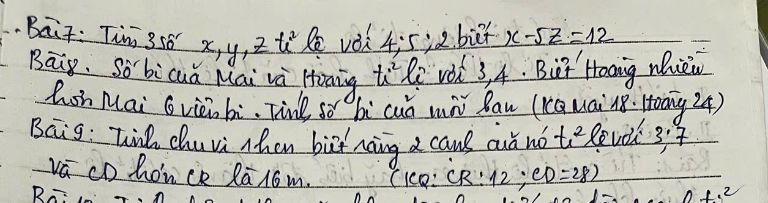 Bài 7: Tìm 3 số x, y, z tỉ lệ với 4; 5; 2 biết x - 5z = 12
Bài 8. Số bi của Mai và Hoàng tỉ lệ với 3, 4. Biết Hoàng nhiều
hơn Mai 6 viên bi. Tính số bi của mỗi bạn (KQ Mai 18. Hoàng 24)
Bài 9: Tính chu vi 1 hcn biết rằng 2 cạnh của nó tỉ lệ với 3; 7
và CD hơn CR là 16m. (KQ: CR: 12; CD = 28)